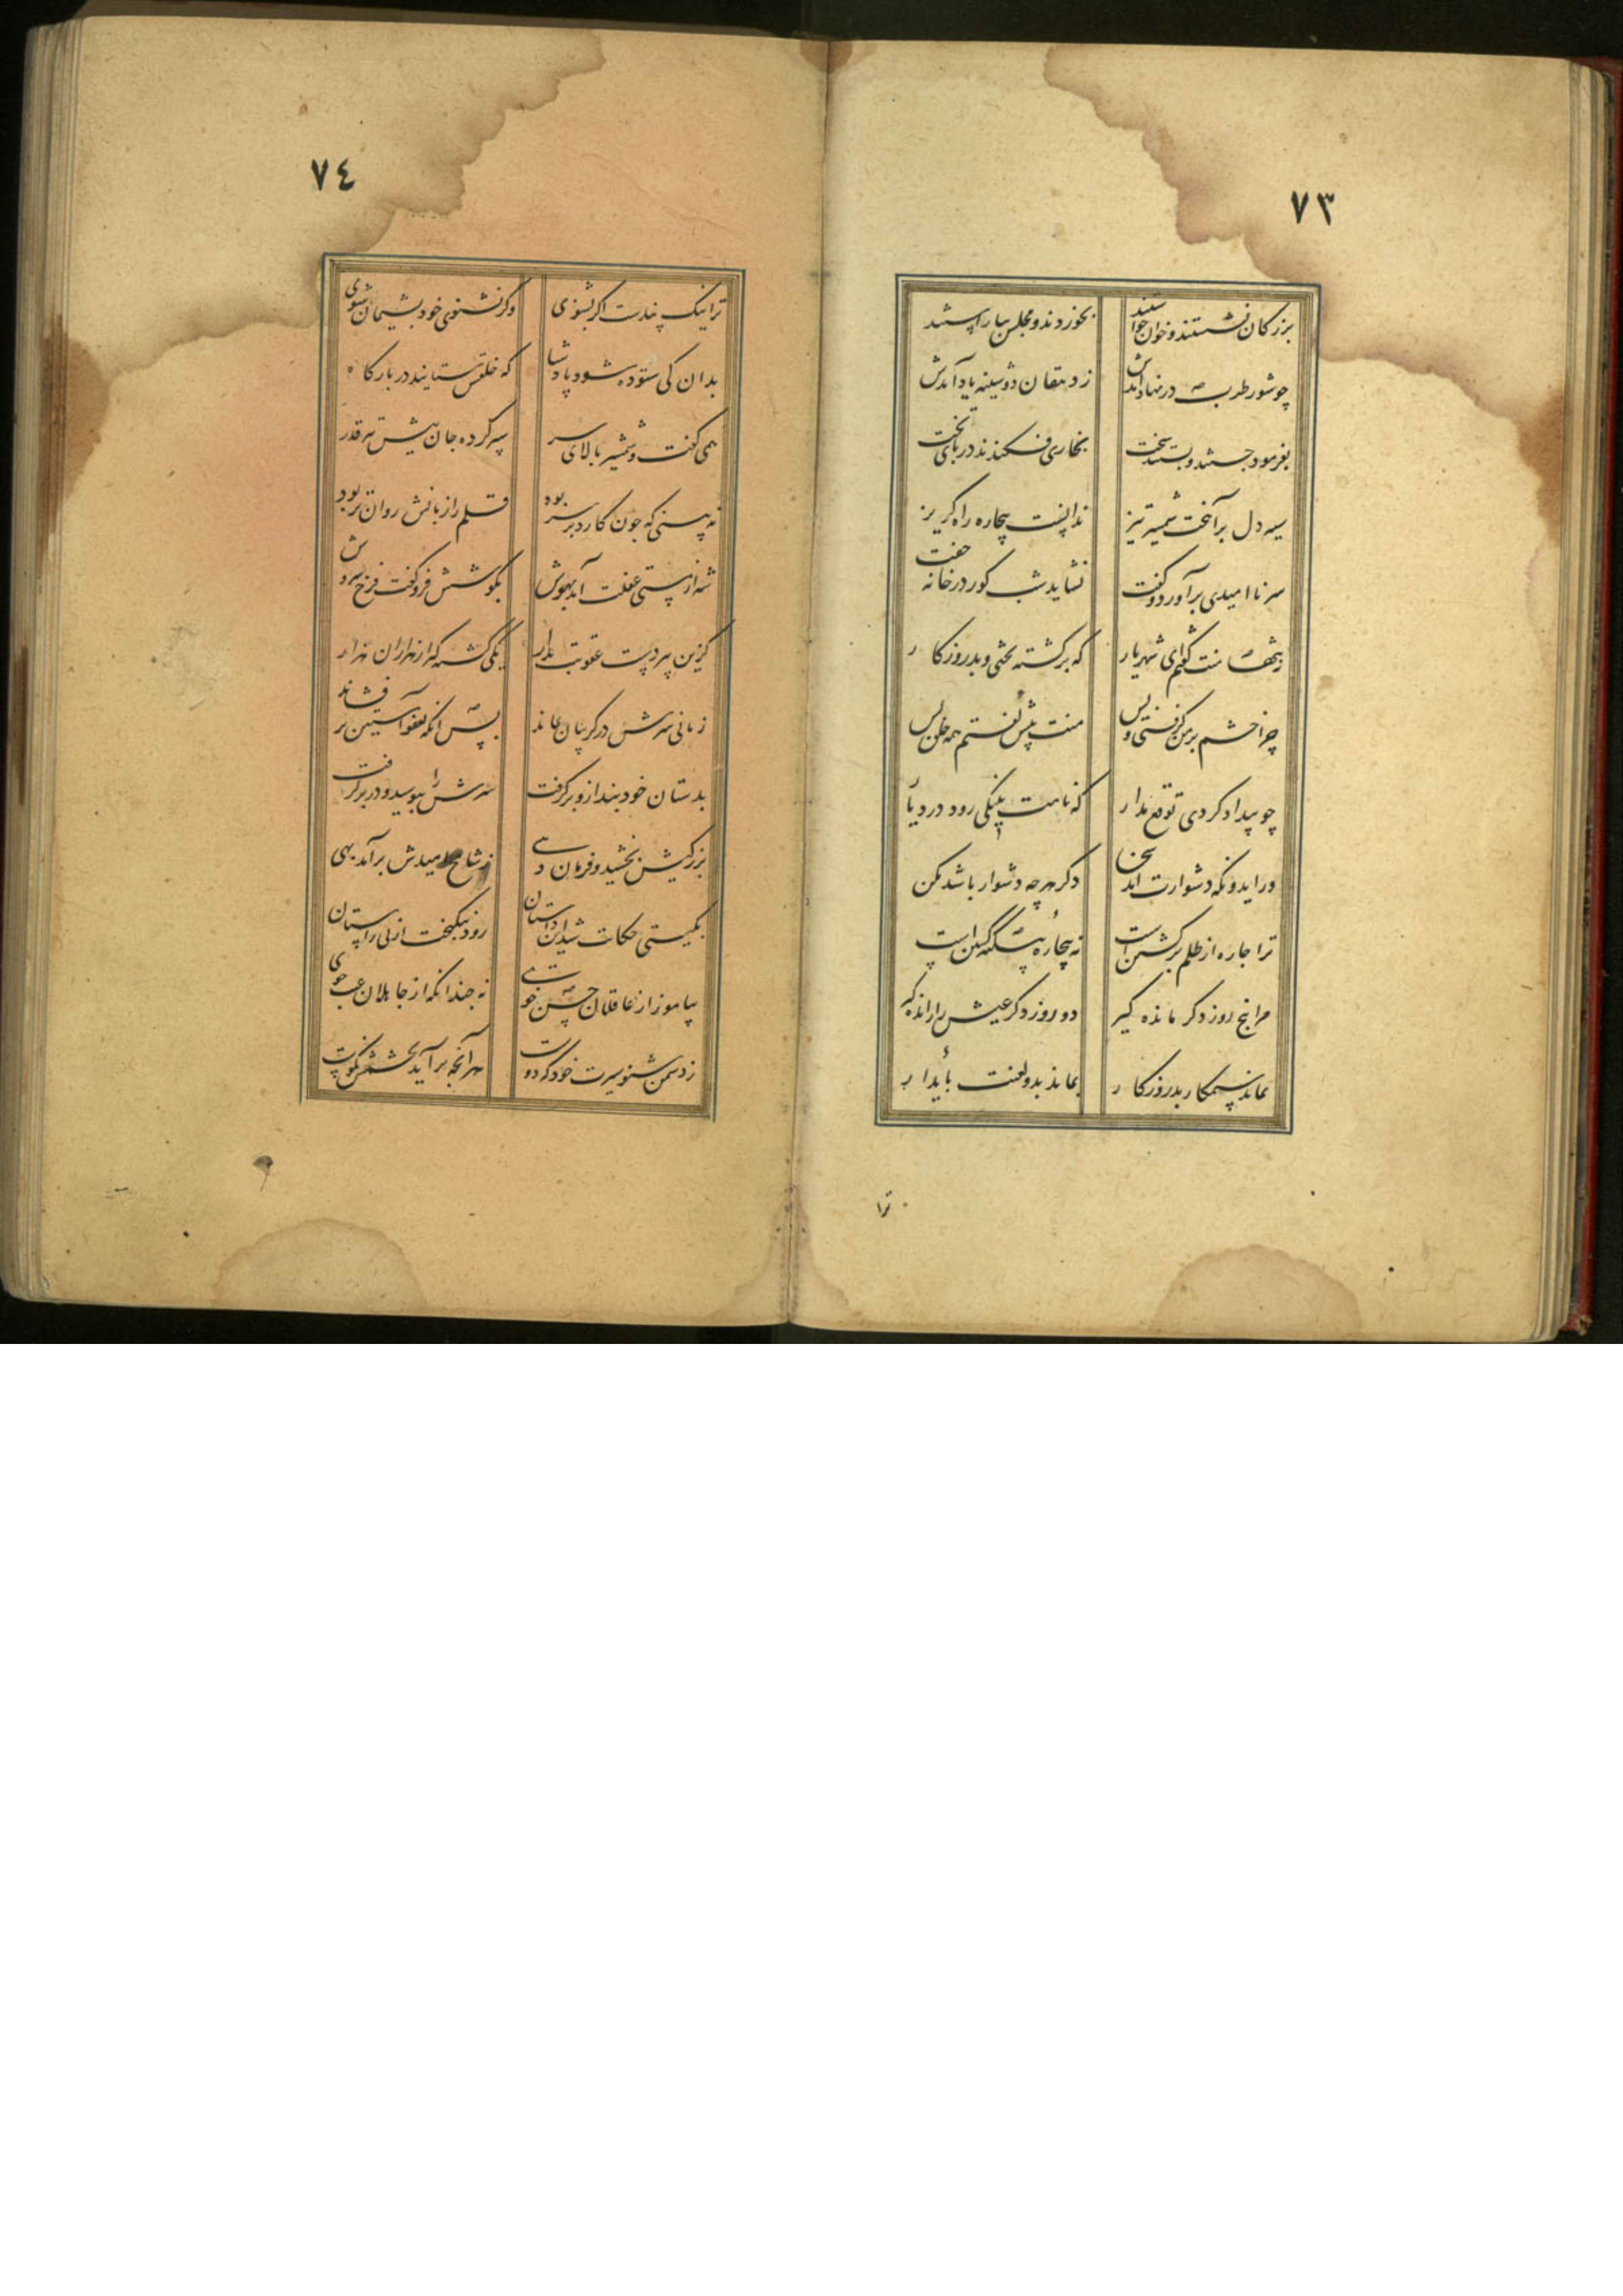 ٧٣
بزرگان نشستند و خوان خواستند
بخوردند و مجلس بیاراستند
چو شور طرب در نهاد آمدش
ز دهقان دوشینه یاد آمدش
بفرمود جستند و بستند سخت
بخاری فکندند در پای تخت
سیه دل برآخت شمشیر تیز
ندانست بیچاره راه گریز
سر ناامیدی برآورد و گفت
نشاید شب گور در خانه خفت
نه تنها منت گفتم ای شهریار
که برگشته بختی و بد روزگار
چرا خشم بر من گرفتی و بس
منت پیش گفتم همه خلق پس
چو بیداد کردی توقع مدار
که نامت بنیکی رود در دیار
ور ایدونکه دشوارت آمد سخن
دگر هر چه دشوار باشد مکن
ترا چاره از ظلم برگشتن است
نه بیچاره بیگنه کشتن است
مرا پنج روز دگر مانده گیر
دو روز دگر عیش رانده گیر
نماند ستمکار بد روزگار
بماند بدو لعنت پایدار
ترا
٧٤
ترا نیک پندست اگر بشنوی
وگر نشنوی خود پشیمان شوی
بدان کی ستوده شود پادشا
که خلقش ستایند در بارگاه
همی گفت و شمشیر بالای سر
سپر کرده جان پیش تیر قدر
نه بینی که چون کارد بر سر بود
قلم را زبانش روان تر بود
شه از مستی غفلت آمد بهوش
بگوشش فرو گفت فرخ سروش
کزین پیر دست عقوبت بدار
یکی کشته گیر از هزاران هزار
زمانی سرش در گریبان بماند
پس آنگه بعفو آستین بر فشاند
بدستان خود بند ازو برگرفت
سرش را ببوسید و در بر گرفت
بزرگیش بخشید و فرمان دهی
ز شاخ امیدش برآمد بهی
بگیتی حکایت شد این داستان
رود نیکبخت از پی راستان
بیاموز از عاقلان حسن خوی
نه چندانکه از جاهلان عیب جوی
ز دشمن شنو سیرت خود که دوست
هر آنچه برآید بچشمش نکوست